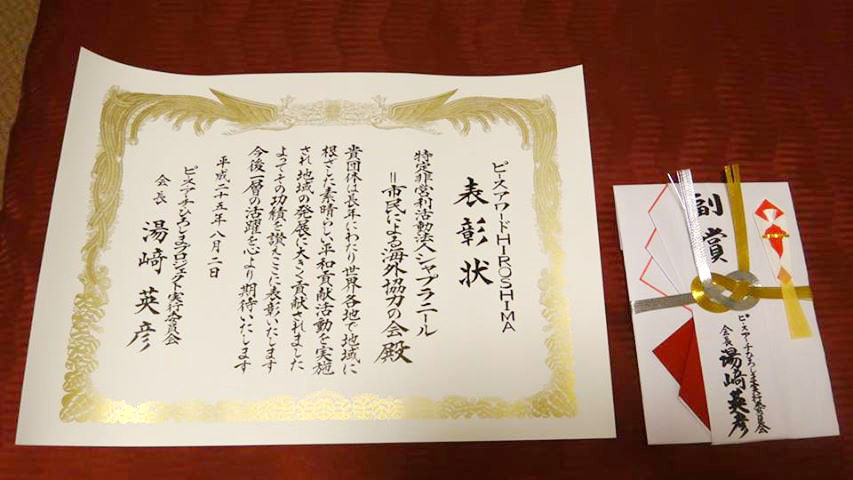 ピースアワードHIROSHIMA
表彰状
特定非営利活動法人シャプラニール
=市民による海外協力の会殿
貴団体は長年にわたり世界各地で地域に
根ざした素晴らしい平和貢献活動を実施
され地域の発展に大きく貢献されました
よってその功績を讃えここに表彰いたします
今後一層の活躍を心より期待いたします
平成二十五年八月二日
ピースアーチひろしまプロジェクト実行委員会
会長 湯﨑英彦
副賞
ピースアーチひろしま実行委員会
会長 湯﨑英彦